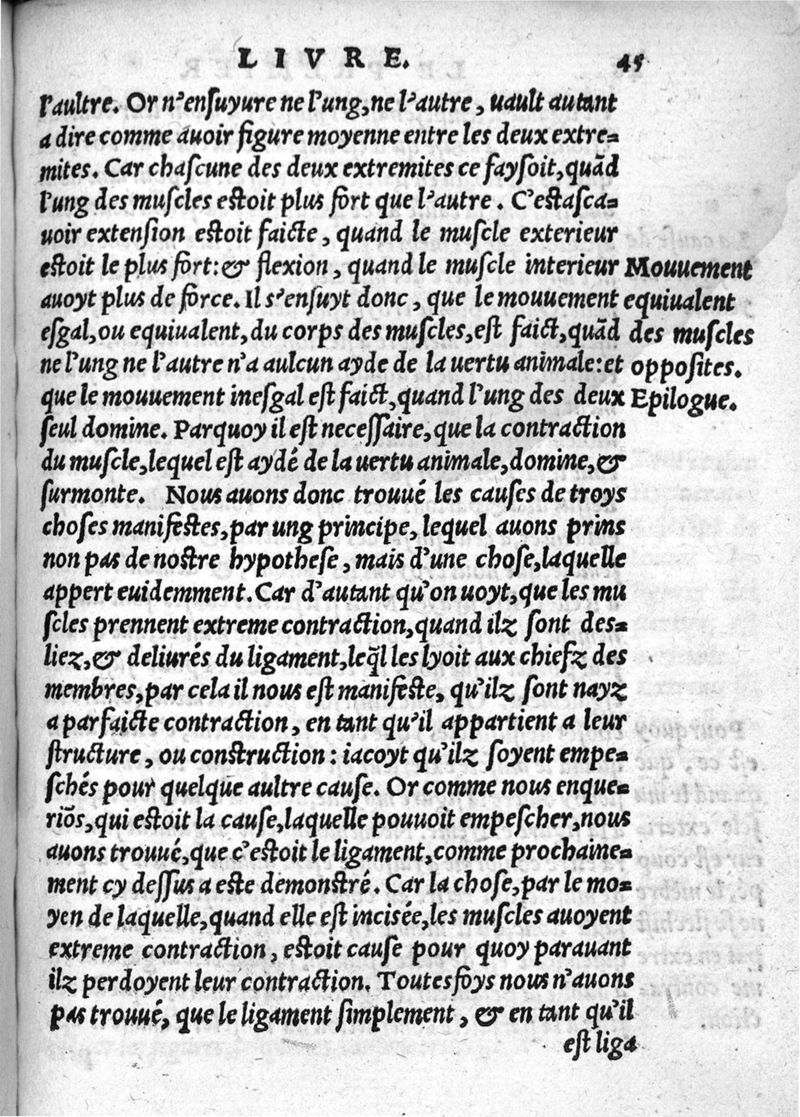 LIVRE. 45
l'aultre. Or n'enſuyure ne l'ung, ne l'autre, uault autant
a dire comme auoir figure moyenne entre les deux extre-
mites. Car chaſcune des deux extremites ce fayſoit, quād
l'ung des muſcles eſtoit plus fort que l'autre. C'eſtaſca-
uoir extenſion eſtoit faicte, quand le muſcle exterieur
eſtoit le plus fort: & flexion, quand le muſcle interieur
auoyt plus de force. Il s'enſuyt donc, que le mouuement
eſgal, ou equiualent, du corps des muſcles, eſt faict, quād
ne l'ung ne l'autre n'a aulcun ayde de la uertu animale: et
que le mouuement ineſgal eſt faict, quand l'ung des deux
ſeul domine. Parquoy il eſt neceſſaire, que la contraction
du muſcle, lequel eſt aydé de la uertu animale, domine, &
ſurmonte. Nous auons donc trouué les cauſes de troys
choſes manifeſtes, par ung principe, lequel auons prins
non pas de noſtre hypotheſe, mais d'une choſe, laquelle
appert euidemment. Car d'autant qu'on uoyt, que les mu
ſcles prennent extreme contraction, quand ilz ſont des-
liez, & deliurés du ligament, leq̄l les lyoit aux chiefz des
membres, par cela il nous eſt manifeſte, qu'ilz ſont nayz
a parfaicte contraction, en tant qu'il appartient a leur
ſtructure, ou conſtruction: iacoyt qu'ilz ſoyent empe-
ſchés pour quelque aultre cauſe. Or comme nous enque-
riōs, qui eſtoit la cauſe, laquelle pouuoit empeſcher, nous
auons trouué, que c'eſtoit le ligament, comme prochaine-
ment cy deſſus a eſte demonſtré. Car la choſe, par le mo-
yen de laquelle, quand elle eſt inciſée, les muſcles auoyent
extreme contraction, eſtoit cauſe pour quoy parauant
ilz perdoyent leur contraction. Toutesfoys nous n'auons
pas trouué, que le ligament ſimplement, & en tant qu'il
eſt liga
Mouuement
equiualent
des muſcles
oppoſites.
Epilogue.